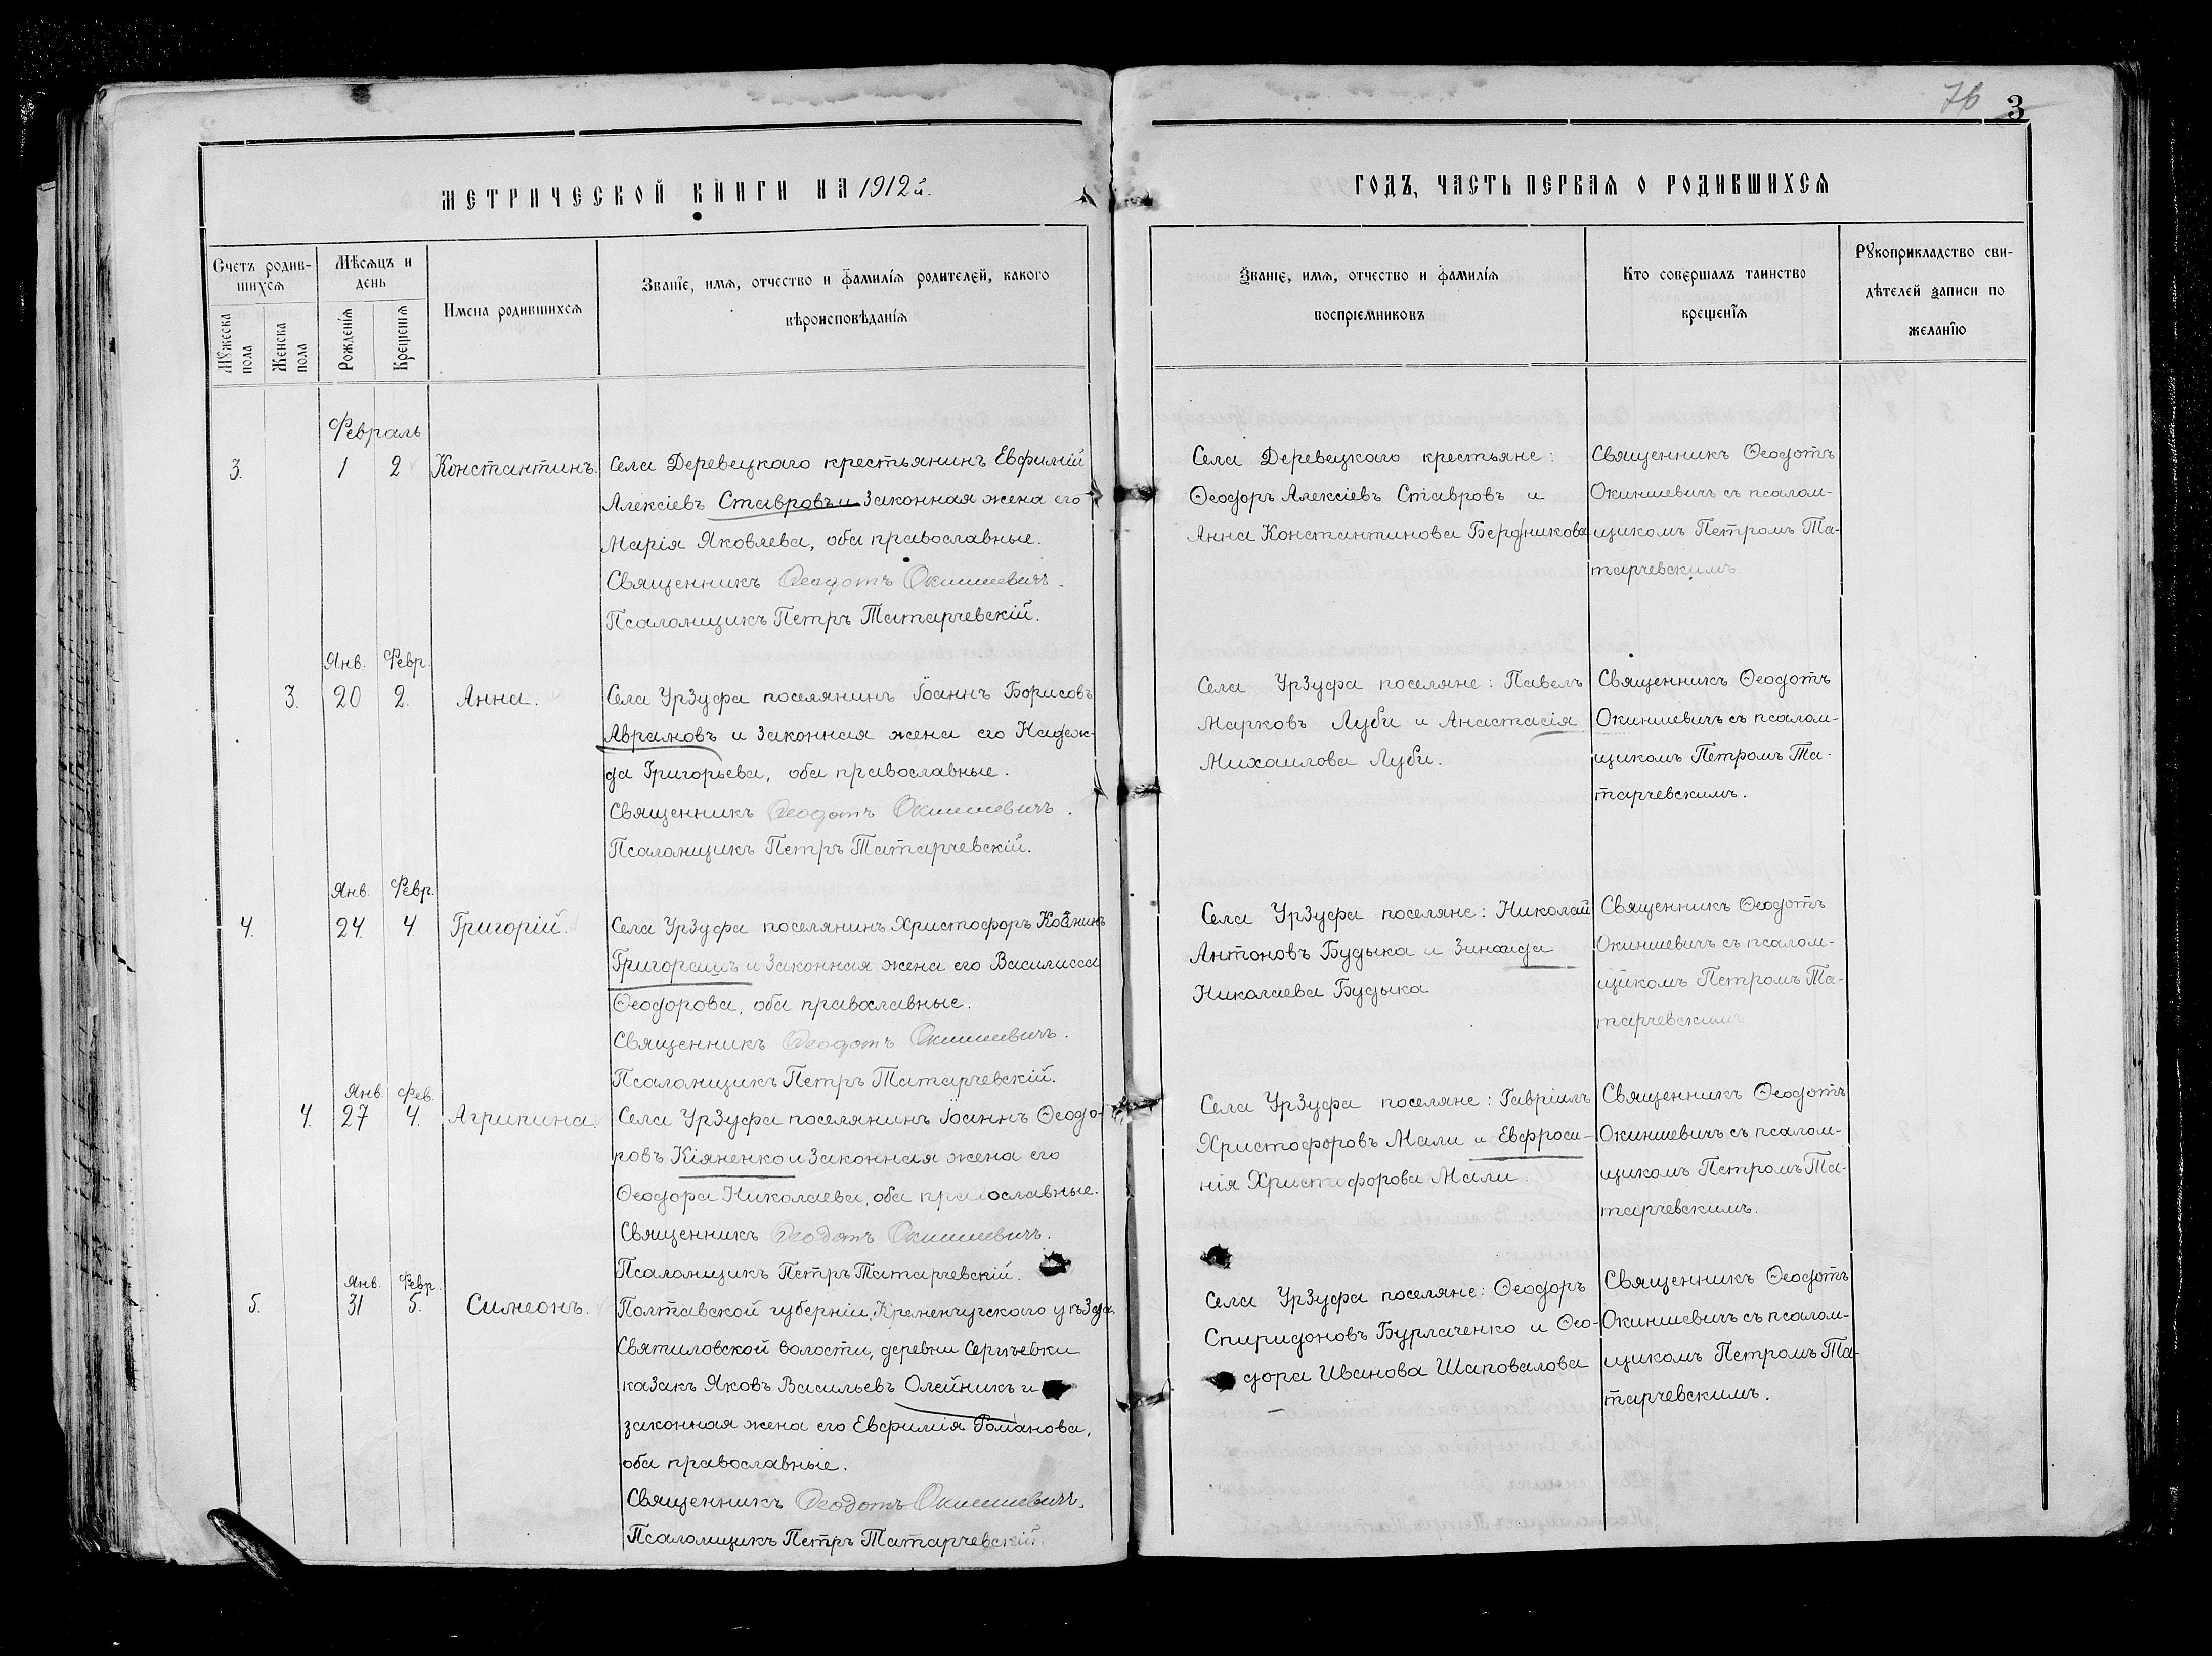 76 3
МЕТРИЧЕСКОЙ КНИГИ НА 1912й.
ГОДЪ, ЧАСТЬ ПЕРВАЯ О РОДИВШИХСЯ
Счетъ родив-
шихся
Мужеска
пола
Женска
пола
Мѣсяцъ и
день
Рожденія
Крещенія
Имена родившихся
Званіе, имя, отчество и фамилія родителей, какого
вѣроисповѣданія
Званіе, имя, отчество и фамилія
воспріемниковъ
Кто совершалъ таинство
крещенія
Рукоприкладство сви-
дѣтелей записи по
желанію
Февраль
3. 1 2 Константинъ.
Села Деревецкаго крестьянинъ Евфимій
Алексіевъ Ставровъ и законная жена его
Марія Яковлева, оба православные.
Священникъ Ѳеодотъ Окиншевичъ.
Псаломщикъ Петръ Татарчевскій.
Села Деревецкаго крестьяне:
Ѳеодоръ Алексіевъ Ставровъ и
Анна Константинова Бердникова
Священникъ Ѳеодотъ
Окиншевичъ съ псалом-
щикомъ Петромъ Та-
тарчевскимъ
Янв. Февр.
3. 20 2. Анна.
Села Урзуфа поселянинъ Іоаннъ Борисовъ
Аврамовъ и законная жена его Надеж-
да Григорьева, оба православные.
Священникъ Ѳеодотъ Окиншевичъ.
Псаломщикъ Петръ Татарчевскій.
Села Урзуфа поселяне: Павелъ
Марковъ Луби и Анастасія
Михаилова Луби.
Священникъ Ѳеодотъ
Окиншевичъ съ псалом-
щикомъ Петромъ Та-
тарчевскимъ.
Янв. Февр.
4. 24 4 Григорій.
Села Урзуфа поселянинъ Христофоръ
Григорашъ и законная жена его Василисса
Ѳеодорова, оба православные.
Священникъ Ѳеодотъ Окиншевичъ.
Псаломщикъ Петръ Татарчевскій.
Села Урзуфа поселяне: Николай
Антоновъ Будыка и Зинаида
Николаева Будыка
Священникъ Ѳеодотъ
Окиншевичъ съ псалом-
щикомъ Петромъ Та-
тарчевскимъ
Янв. Фев.
4. 27 4. Агрипина.
Села Урзуфа поселянинъ Іоаннъ Ѳеодо-
ровъ Кіяненко и законная жена его
Ѳеодора Николаева, оба православные.
Священникъ Ѳеодотъ Окиншевичъ.
Псаломщикъ Петръ Татарчевскій.
Села Урзуфа поселяне: Гавріилъ
Христофоровъ Мали и Евфроси-
нія Христофорова Мали.
Священникъ Ѳеодотъ
Окиншевичъ съ псалом-
щикомъ Петромъ Та-
тарчевскимъ.
Янв. Февр.
5. 31 5. Симеонъ.
Полтавской губерніи, Кременчугского уѣзда
Святиловской волости, деревни Сергѣевки
казакъ Яковъ Васильевъ Олейникъ и
законная жена его Евфимія Романова,
оба православные.
Священникъ Ѳеодотъ Окиншевичъ.
Псаломщикъ Петръ Татарчевскій.
Села Урзуфа поселяне: Ѳеодоръ
Спиридоновъ Бурлаченко и Ѳео-
дора Иванова Шаповалова
Священникъ Ѳеодотъ
Окиншевичъ съ псалом-
щикомъ Петромъ Та-
тарчевскимъ.